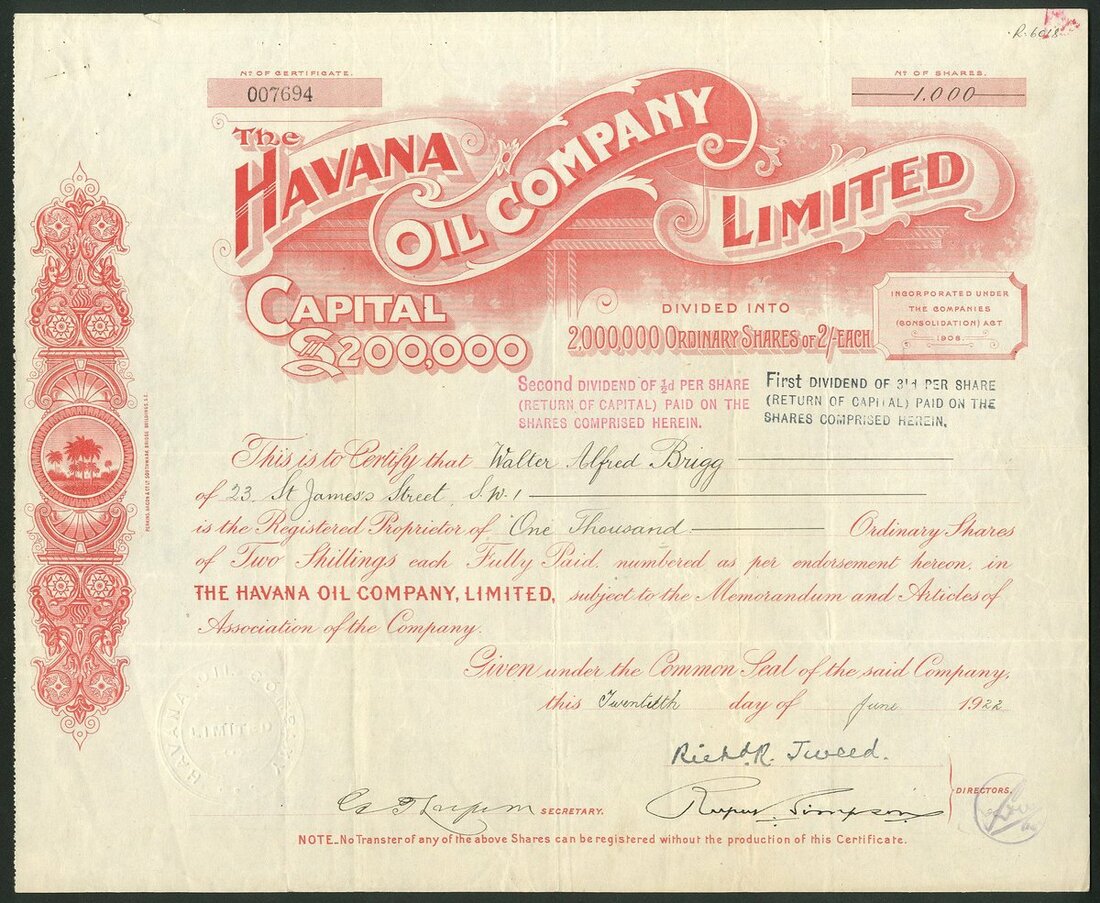 R. 6018
Nº OF CERTIFICATE.
007694
Nº OF SHARES.
1.000
The
HAVANA
OIL COMPANY
LIMITED
CAPITAL
£200,000
DIVIDED INTO
2,000,000 ORDINARY SHARES OF 2/- EACH
INCORPORATED UNDER
THE COMPANIES
(CONSOLIDATION) ACT
1908.
Second DIVIDEND OF ½d PER SHARE
(RETURN OF CAPITAL) PAID ON THE
SHARES COMPRISED HEREIN.
First DIVIDEND OF 3½d PER SHARE
(RETURN OF CAPITAL) PAID ON THE
SHARES COMPRISED HEREIN.
This is to Certify that Walter Alfred Brigg
of 23. St James's Street S.W.1
is the Registered Proprietor of One Thousand Ordinary Shares
of Two Shillings each Fully Paid, numbered as per endorsement hereon, in
THE HAVANA OIL COMPANY, LIMITED, subject to the Memorandum and Articles of
Association of the Company.
Given under the Common Seal of the said Company,
this Twentieth day of June 1922
HAVANA OIL COMPANY
LIMITED
Richd. R. Tweed.
SECRETARY.
Rupus Simpson
DIRECTORS.
NOTE_No Transfer of any of the above Shares can be registered without the production of this Certificate.
PERKINS, BACON & Cº Lº SOUTHWARK BRIDGE BUILDINGS, S.E.